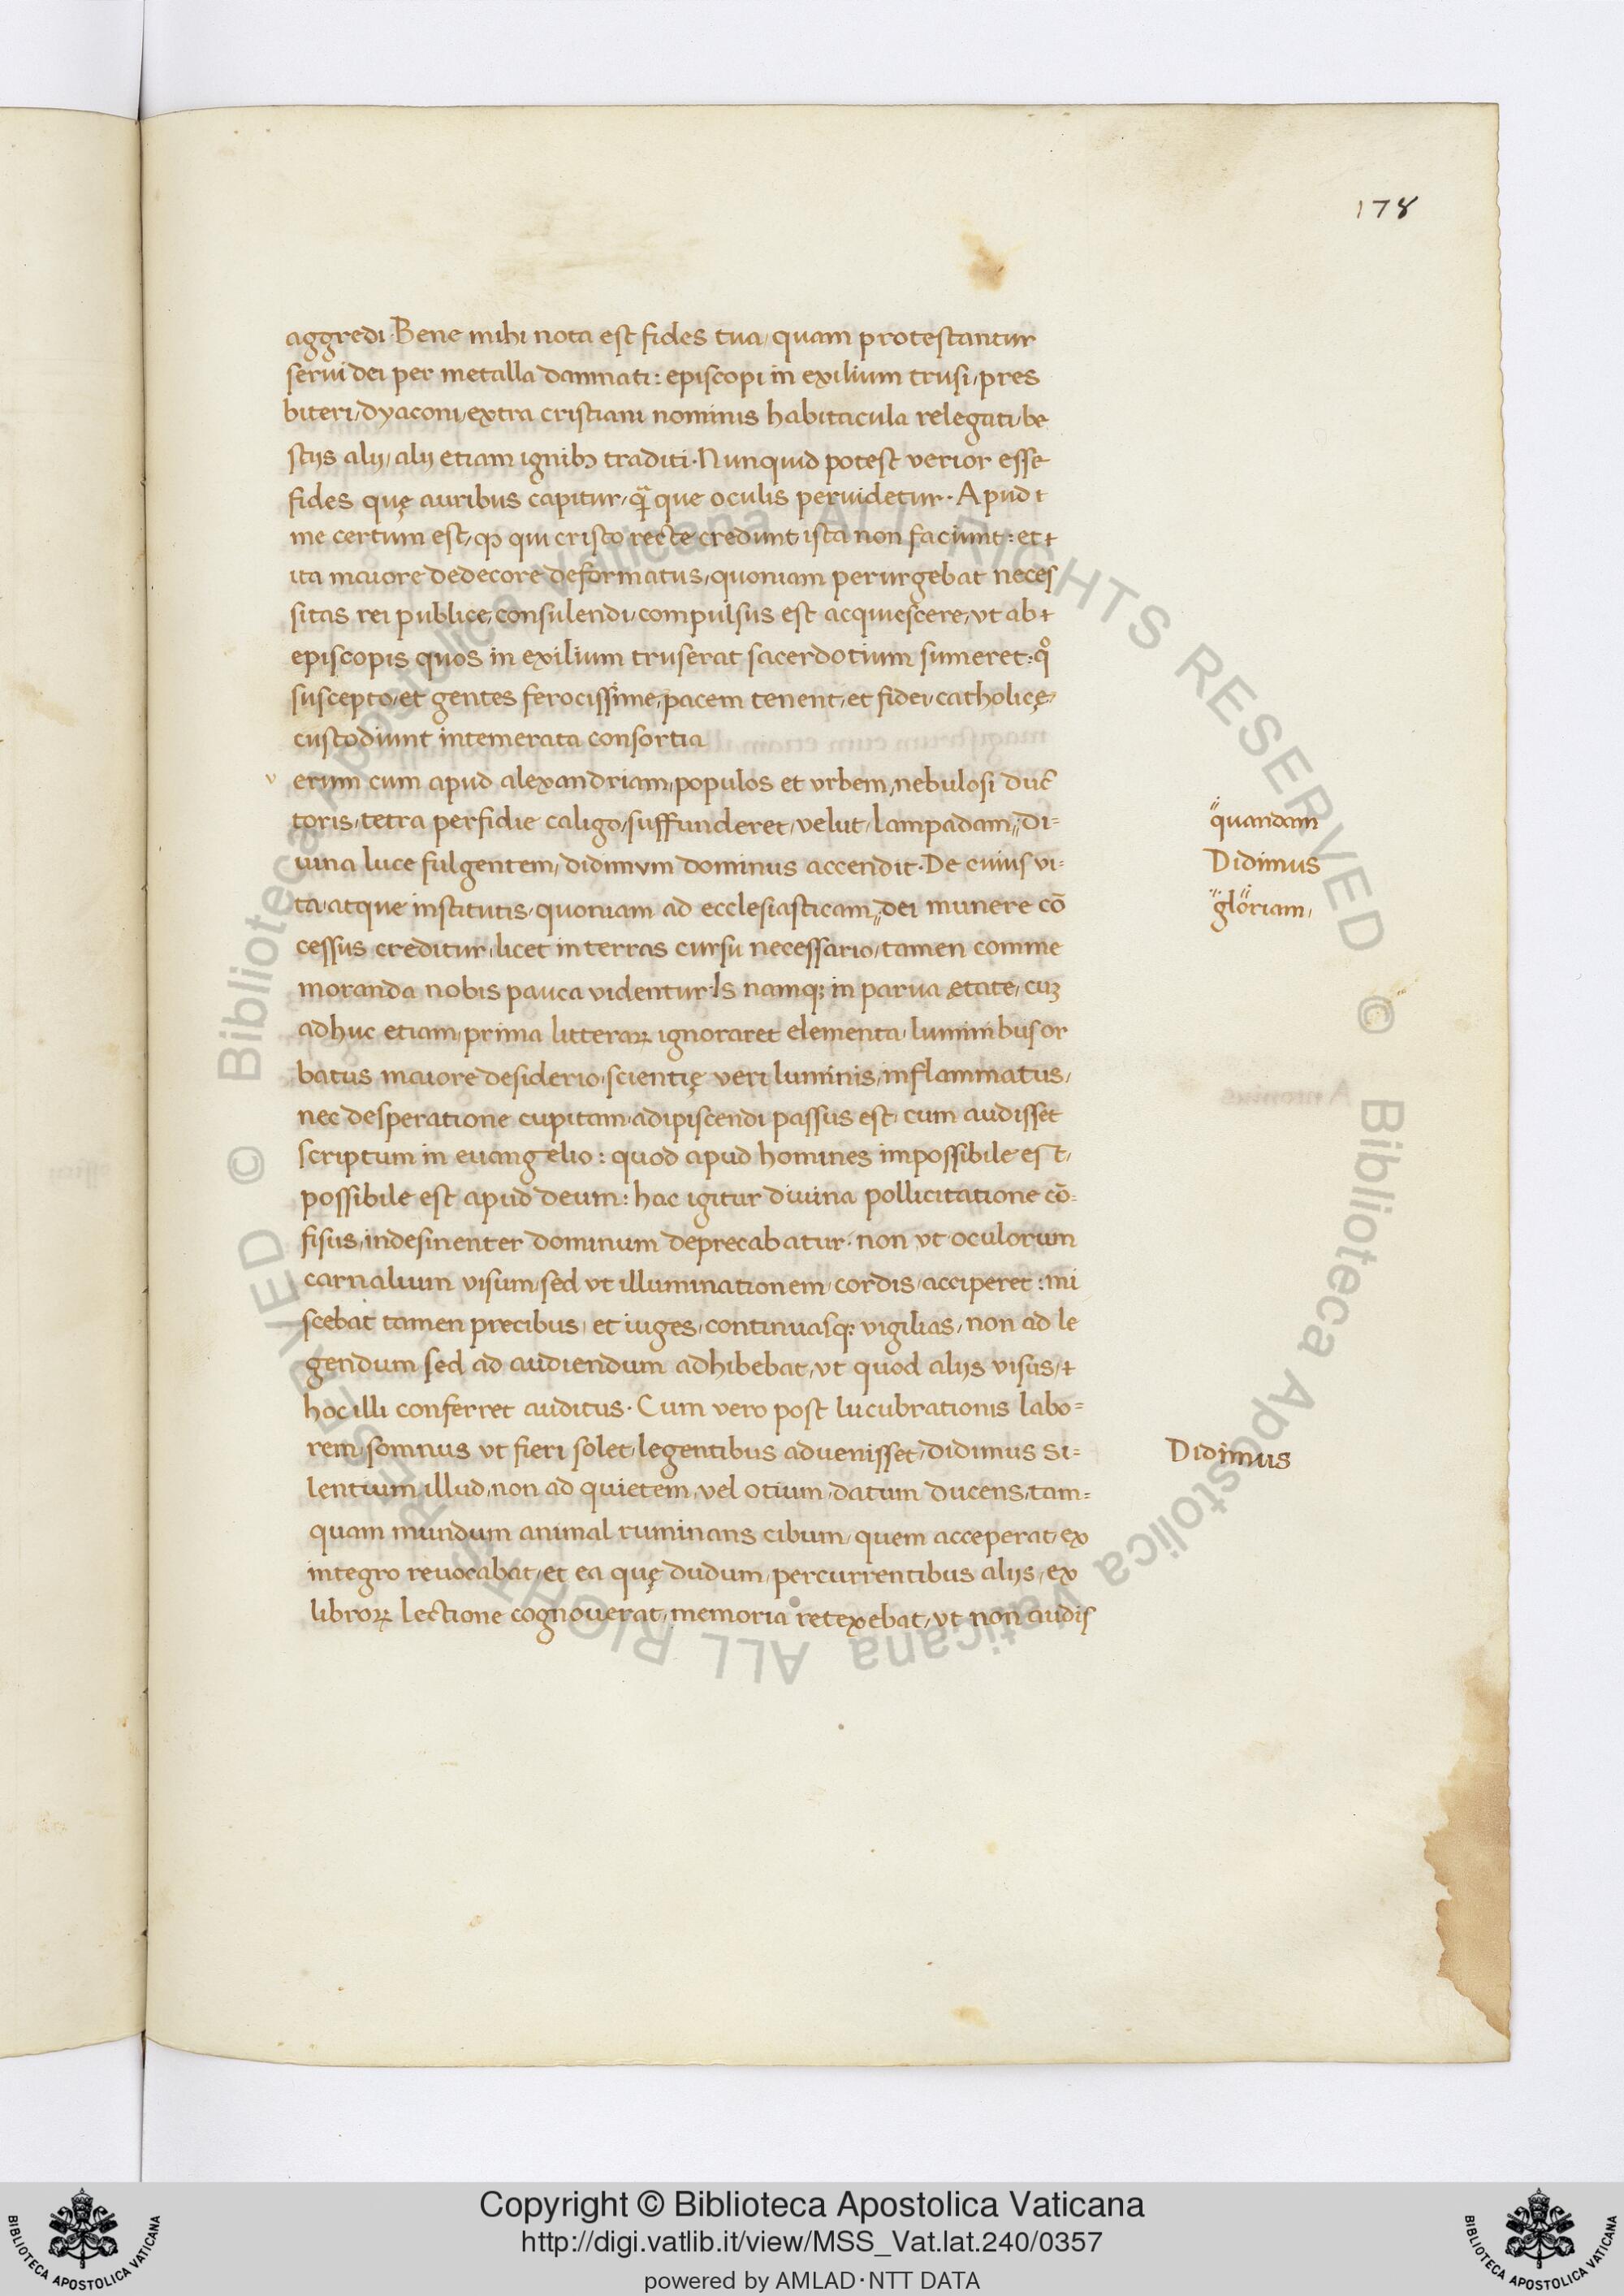 178
aggredi · Bene mihi nota est fides tua, quam protestantur
serui dei per metalla damnati : episcopi in exilium trusi, pres
biteri, dyaconi, extra cristiani nominis habitacula relegati, be
stiis alij, alij etiam ignibꝫ traditi · Nunquid potest verior esse
fides quę auribus capitur, qᷓ que oculis peruidetur · Apud
me certum est, ꝙ qui cristo recte credunt ista non faciunt : et
ita maiore dedecore deformatus, quoniam perurgebat neces
sitas rei publice, consulendi, compulsus est acquiescere, vt ab
episcopis quos in exilium truserat sacerdotium sumeret : qͦ
suscepto, et gentes ferocissime, pacem tenent, et fidei, catholicę,
custodiunt intemerata consortia
v erum cum apud alexandriam, populos et vrbem, nebulosi duc̄
toris, tetra perfidie caligo, suffunderet, velut, lampadam,, di=
uina luce fulgentem, didimvm dominus accendit · De cuius vi=
ta, atque institutis, quoniam ad ecclesiasticam,, dei munere cō
cessus creditur, licet in terras cursu necessario, tamen comme
moranda nobis pauca videntur · Is namqꝫ in parua ętate, cuꝫ
adhuc etiam, prima litteraꝝ ignoraret elementa, luminibus or
batus maiore desiderio, scientię veri luminis, inflammatus,
nec desperatione cupitam, adipiscendi passus est, cum audisset
scriptum in euangelio : quod apud homines impossibile est,
possibile est apud deum : hac igitur diuina pollicitatione cō=
fisus, indesinenter dominum deprecabatur · non vt oculorum
carnalium visum, sed vt illuminationem, cordis, acciperet : mi
scebat tamen precibus, et iuges, continuasqꝫ vigilias, non ad le
gendum sed ad audiendum adhibebat, vt quod alijs visus,
hoc illi conferret auditus · Cum vero post lucubrationis labo=
rem, somnus vt fieri solet, legentibus aduenisset, didimus si=
lentium, illud, non ad quietem, vel otium, datum ducens, tam=
quam mundum animal ruminans cibum, quem acceperat, ex
integro reuocabat, et ea quę dudum, percurrentibus alijs, ex
libroꝝ lectione cognouerat, memoria retexebat, vt non audis
quandam
Didimus
gloriam,
Didimus
© Biblioteca Apostolica Vaticana ALL RIGHTS RESERVED
© Biblioteca Apostolica Vaticana ALL RIGHTS RESERVED
Copyright © Biblioteca Apostolica Vaticana
http://digi.vatlib.it/view/MSS_Vat.lat.240/0357
powered by AMLAD·NTT DATA
BIBLIOTECA APOSTOLICA VATICANA
BIBLIOTECA APOSTOLICA VATICANA